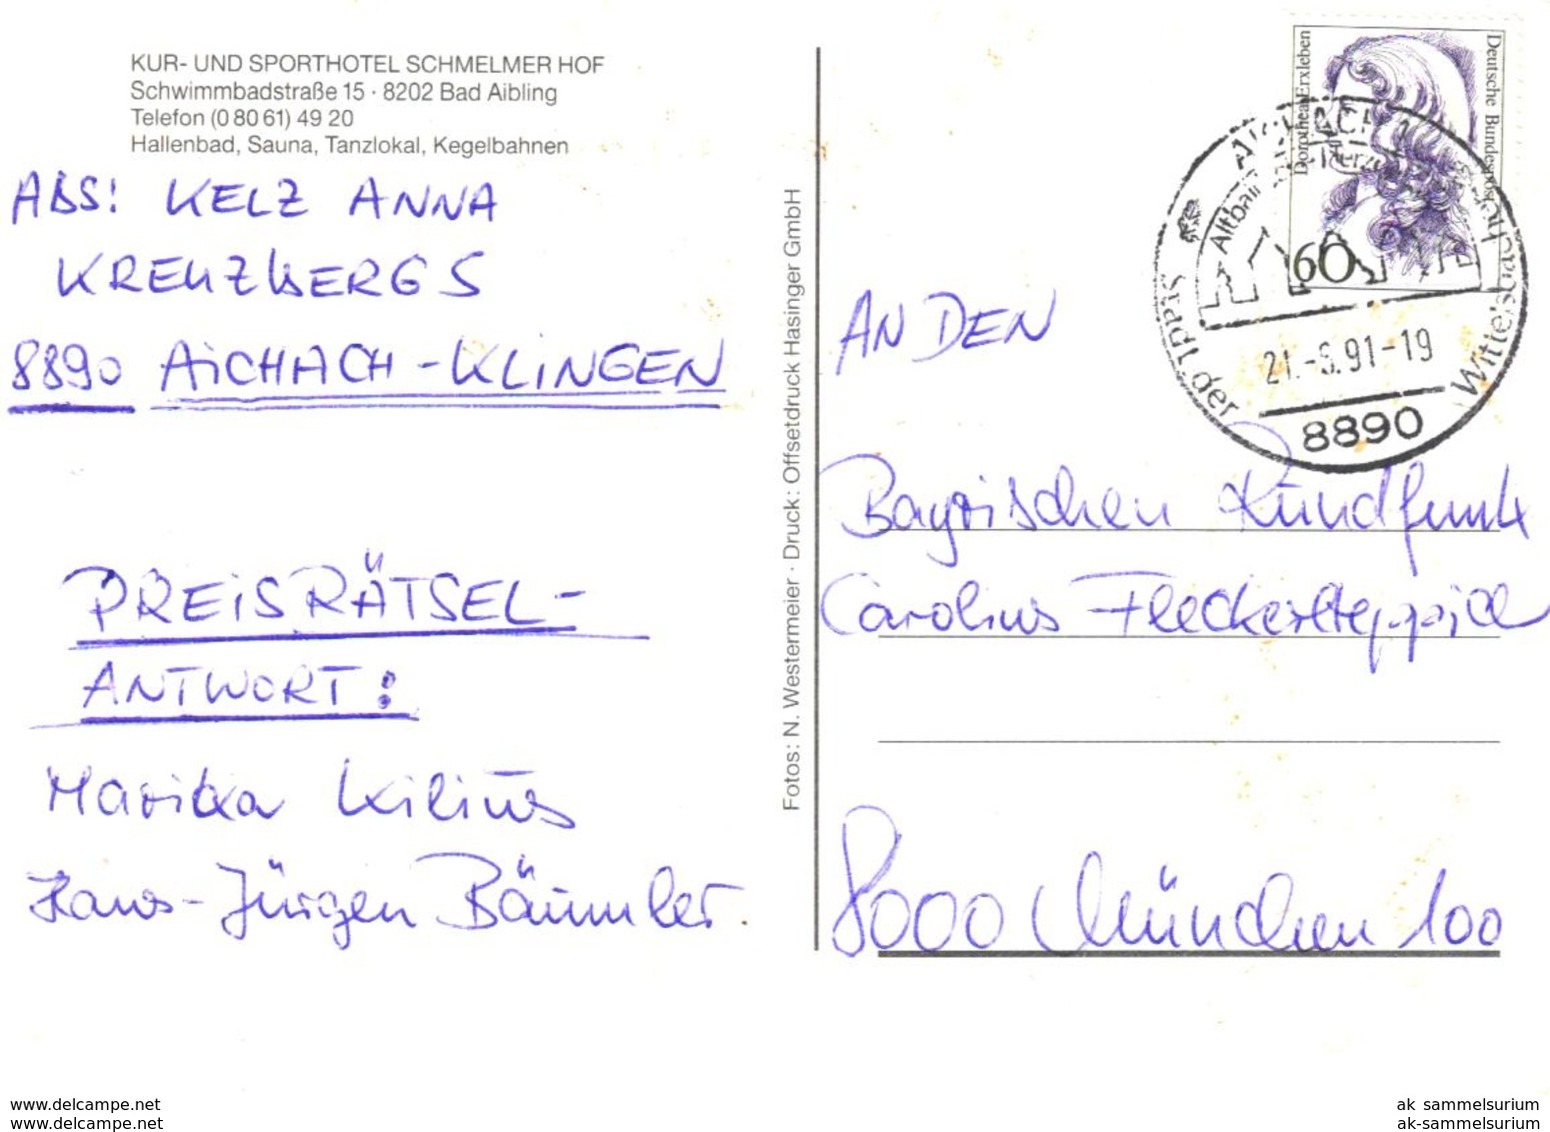 KUR- UND SPORTHOTEL SCHMELMER HOF
Schwimmbadstraße 15 · 8202 Bad Aibling
Telefon (0 80 61) 49 20
Hallenbad, Sauna, Tanzlokal, Kegelbahnen
ABS! KELZ ANNA
KREUZBERG 5
8890 AiCHACH-KLiNGEN
PREiSRÄTSEL-
ANTWORT:
Marika Kilius
Hans-Jürgen Bäumler.
Fotos: N. Westermeier · Druck: Offsetdruck Hasinger GmbH
Dorothea Erxleben
Deutsche Bundespost
60
AICHACH 1
Stadt der Wittelsbacher
21.-6.91-19
8890
AN DEN
Bayrischen Rundfunk
Carolins Fleckerlteppich
8000 München 100
www.delcampe.net
www.delcampe.net
ak_sammelsurium
ak-sammelsurium